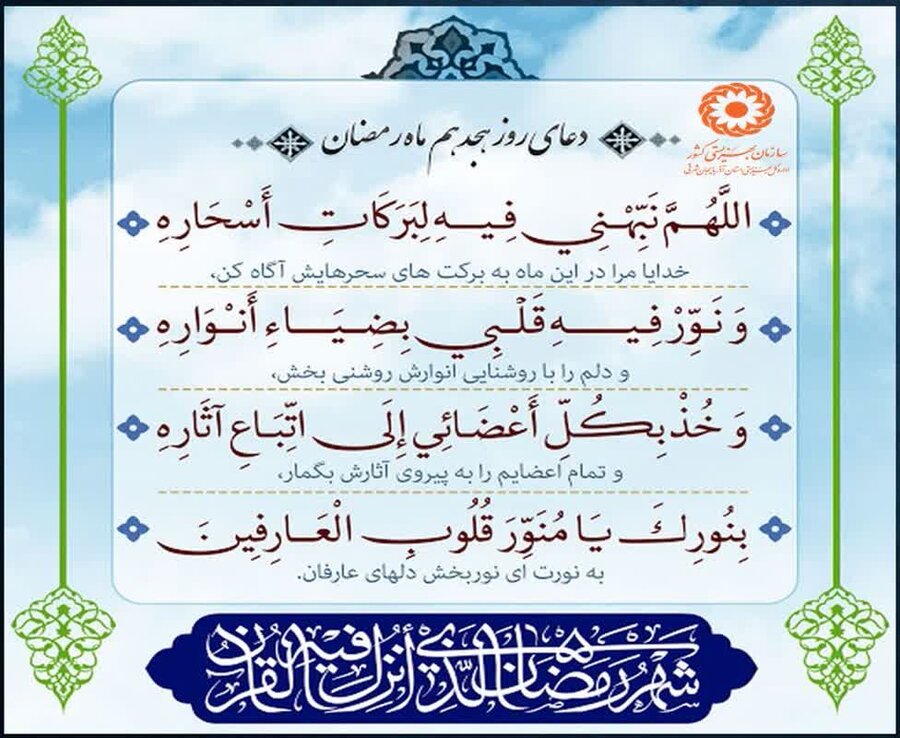 دعای روز هجدهم ماه رمضان
سازمان بهزیستی کشور
اداره کل بهزیستی استان آذربایجان شرقی
اللَّهُمَّ نَبِّهْنِي فِيهِ لِبَرَكَاتِ أَسْحَارِهِ
خدایا مرا در این ماه به برکت های سحرهایش آگاه کن،
وَ نَوِّرْ فِيهِ قَلْبِي بِضِيَاءِ أَنْوَارِهِ
و دلم را با روشنایی انوارش روشنی بخش،
وَ خُذْ بِكُلِّ أَعْضَائِي إِلَى اتِّبَاعِ آثَارِهِ
و تمام اعضایم را به پیروی آثارش بگمار،
بِنُورِكَ يَا مُنَوِّرَ قُلُوبِ الْعَارِفِينَ
به نورت ای نوربخش دلهای عارفان.
شهر رمضان الذي أنزل فيه القرآن